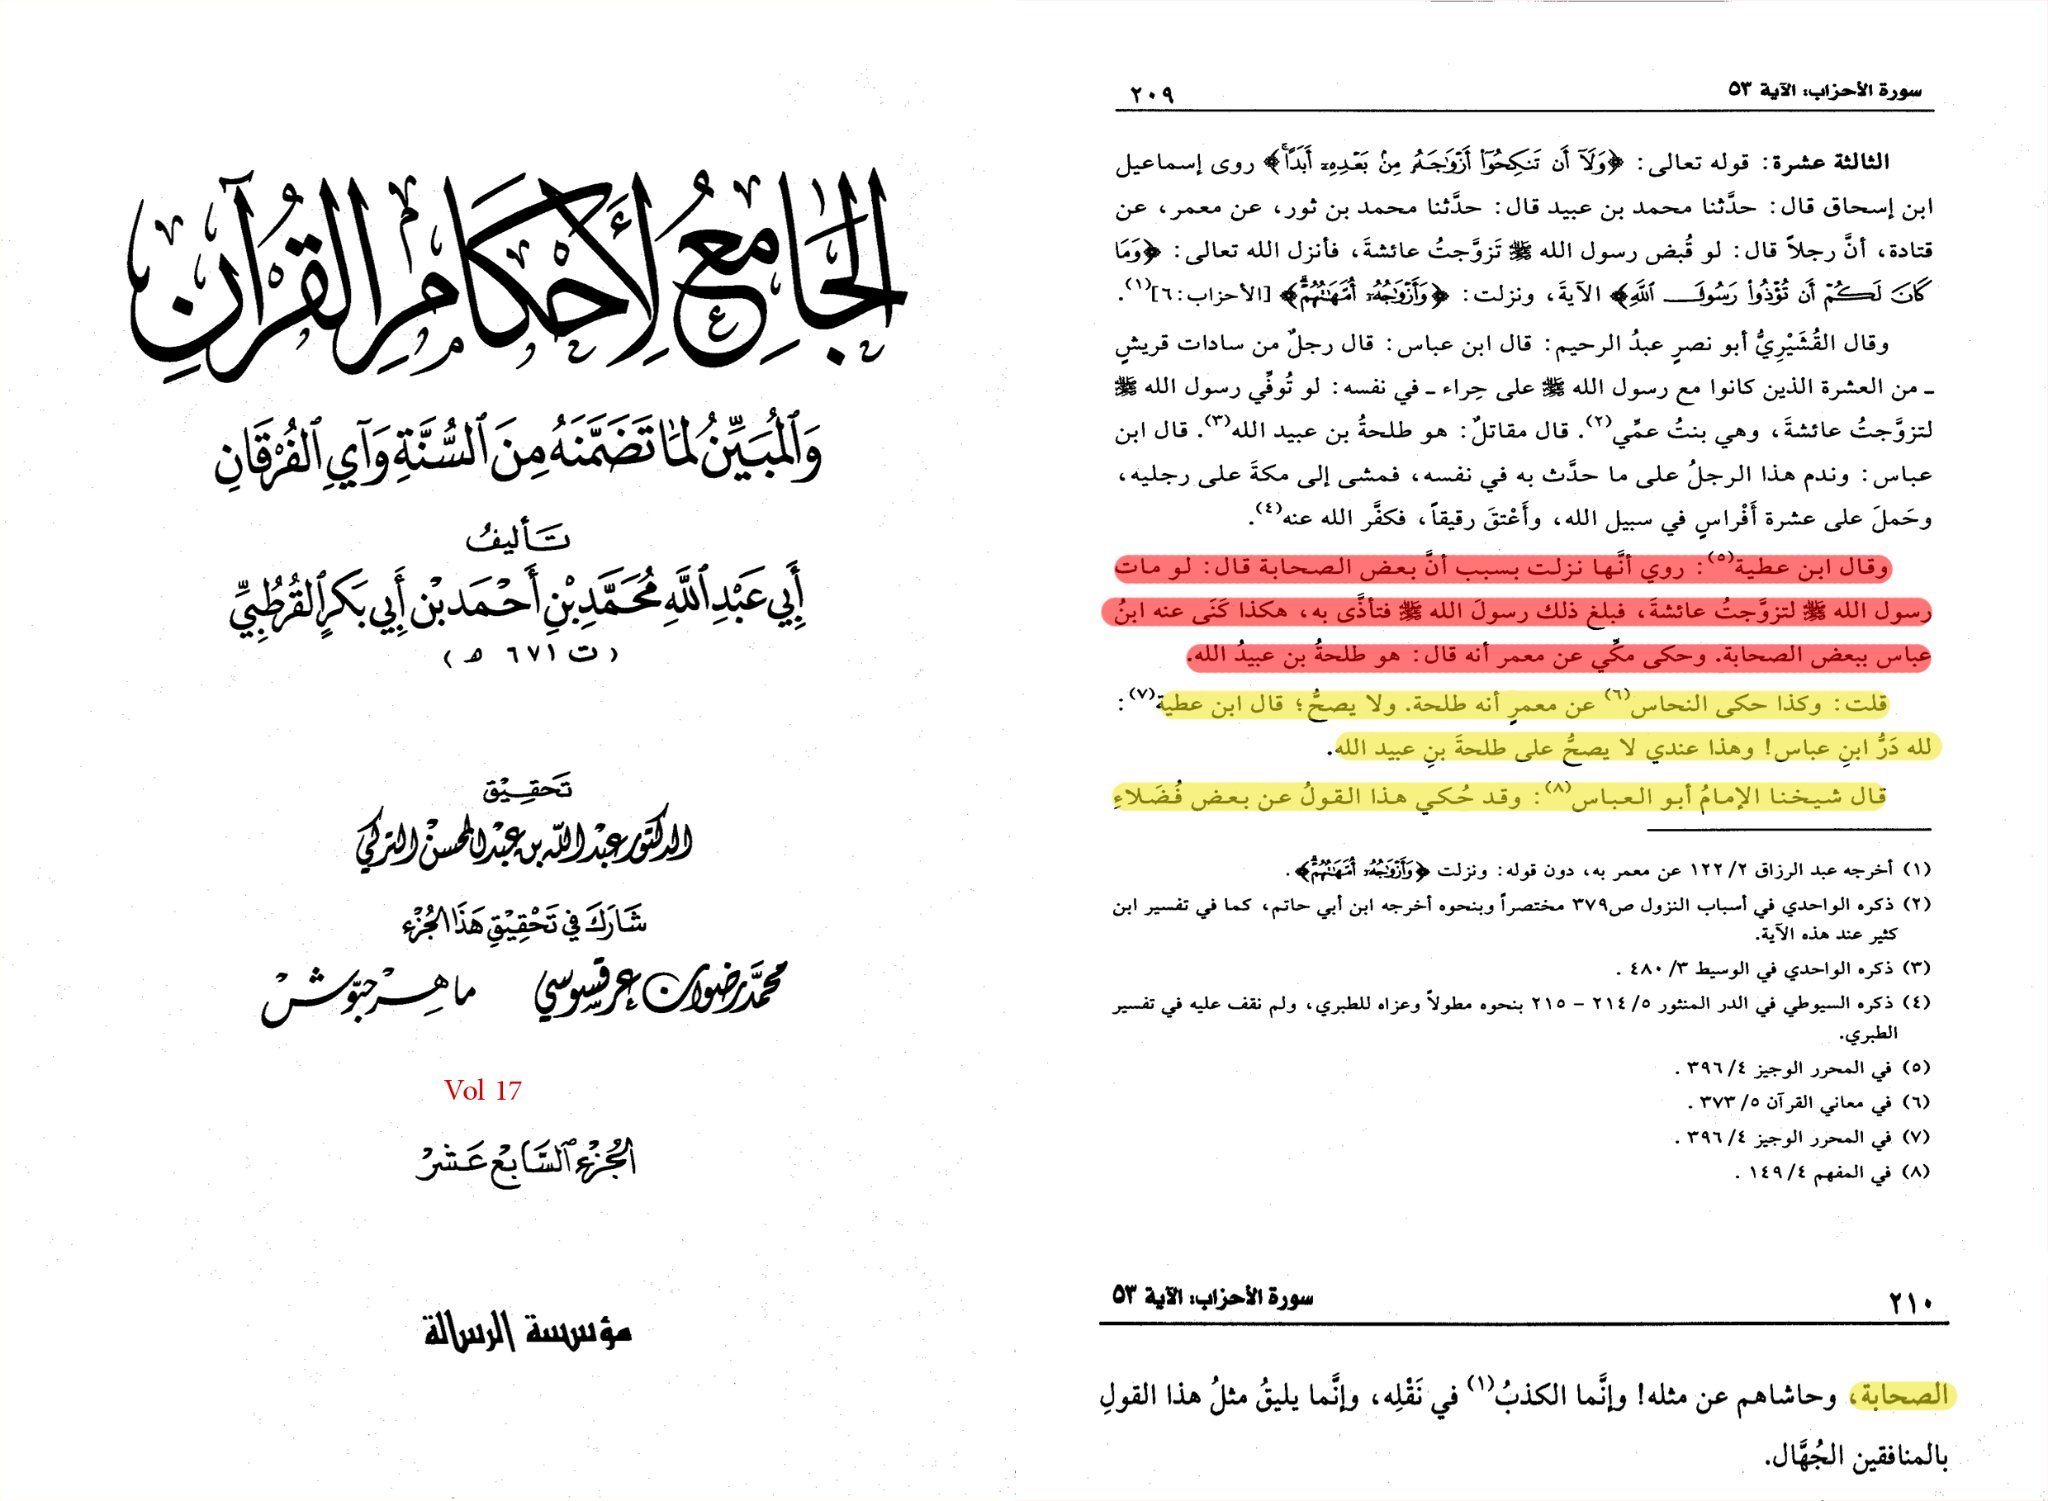 الجامع لأحكام القرآن
وَٱلمُبَيِّنُ لِمَا تَضَمَّنَهُ مِنَ ٱلسُّنَّةِ وَآيِ ٱلفُرْقَانِ
تَأليفُ
أَبِي عَبْدِ ٱللَّهِ مُحَمَّدِ بْنِ أَحْمَد بْن أَبِي بَكرٍ ٱلقُرْطُبِيِّ
( ت ٦٧١ ھ )
تَحقِيْق
الدكتور عبد الله بن عبد المحسن التركي
شَارَكَ في تَحْقِيْقِ هَذَا الجُزْء
محمَّد رضوان عرقسوسي ماهر حبّوش
Vol 17
الجُزْء ٱلسَّابِع عَشَر
مؤسسة الرسالة
سورة الأحزاب: الآية ٥٣ ٢٠٩
الثالثة عشرة: قوله تعالى: ﴿وَلَآ أَن تَنكِحُوٓاْ أَزۡوَٰجَهُۥ مِنۢ بَعۡدِهِۦٓ أَبَدًاۚ﴾ روى إسماعيل
ابن إسحاق قال: حدَّثنا محمد بن عبيد قال: حدَّثنا محمد بن ثور، عن معمر، عن
قتادة، أنَّ رجلاً قال: لو قُبض رسول الله ﷺ تَزوَّجتُ عائشةَ، فأنزل الله تعالى: ﴿وَمَا
كَانَ لَكُمۡ أَن تُؤۡذُواْ رَسُولَ ٱللَّهِ﴾ الآيةَ، ونزلت: ﴿وَأَزۡوَٰجُهُۥٓ أُمَّهَٰتُهُمۡۗ﴾ [الأحزاب:٦](١).
وقال القُشَيْرِيُّ أبو نصرٍ عبدُ الرحيم: قال ابن عباس: قال رجلٌ من سادات قريشٍ
ـ من العشرة الذين كانوا مع رسول الله ﷺ على حِراء ـ في نفسه: لو تُوفِّي رسول الله ﷺ
لتزوَّجتُ عائشةَ، وهي بنتُ عمِّي(٢). قال مقاتلٌ: هو طلحةُ بن عبيد الله(٣). قال ابن
عباس: وندم هذا الرجلُ على ما حدَّث به في نفسه، فمشى إلى مكةَ على رجليه،
وحَملَ على عشرة أَفْراسٍ في سبيل الله، وأَعْتقَ رقيقاً، فكفَّر الله عنه(٤).
وقال ابن عطية(٥): روي أنَّها نزلت بسبب أنَّ بعض الصحابة قال: لو مات
رسول الله ﷺ لتزوَّجتُ عائشةَ، فبلغ ذلك رسولَ الله ﷺ فتأذَّى به، هكذا كَنَى عنه ابنُ
عباس ببعض الصحابة. وحكى مكِّي عن معمر أنه قال: هو طلحةُ بن عبيدُ الله.
قلت: وكذا حكى النحاس(٦) عن معمرٍ أنه طلحة. ولا يصحُّ؛ قال ابن عطية(٧):
لله دَرُّ ابنِ عباس! وهذا عندي لا يصحُّ على طلحةَ بنِ عبيد الله.
قال شيخنا الإمامُ أبو العباس(٨): وقد حُكي هذا القولُ عن بعض فُضَلاءِ
(١) أخرجه عبد الرزاق ٢/ ١٢٢ عن معمر به، دون قوله: ونزلت ﴿وَأَزۡوَٰجُهُۥٓ أُمَّهَٰتُهُمۡۗ﴾.
(٢) ذكره الواحدي في أسباب النزول ص٣٧٩ مختصراً وبنحوه أخرجه ابن أبي حاتم، كما في تفسير ابن
كثير عند هذه الآية.
(٣) ذكره الواحدي في الوسيط ٣/ ٤٨٠ .
(٤) ذكره السيوطي في الدر المنثور ٥/ ٢١٤ – ٢١٥ بنحوه مطولاً وعزاه للطبري، ولم نقف عليه في تفسير
الطبري.
(٥) في المحرر الوجيز ٤/ ٣٩٦ .
(٦) في معاني القرآن ٥/ ٣٧٣ .
(٧) في المحرر الوجيز ٤/ ٣٩٦ .
(٨) في المفهم ٤/ ١٤٩ .
٢١٠ سورة الأحزاب: الآية ٥٣
الصحابة، وحاشاهم عن مثله! وإنَّما الكذبُ(١) في نَقْلِه، وإنَّما يليقُ مثلُ هذا القولِ
بالمنافقين الجُهَّال.